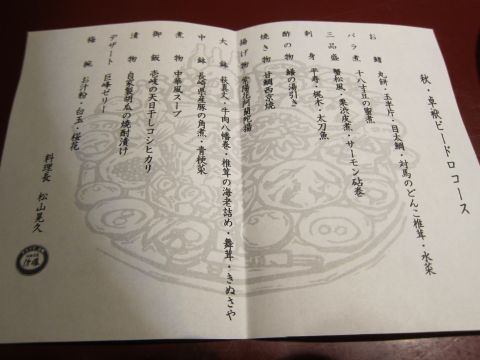 秋・卓袱ビードロコース
お鰭 丸餅・玉半片・目太鯛・対馬のどんこ椎茸・水菜
バラ煮 十八寸豆の蜜煮
三品盛 蟹松風・栗渋皮煮・サーモン砧巻
刺身 平寿・梶木・太刀魚
酢の物 鱧の湯引き
焼き物 甘鯛西京焼
揚げ物
大鉢 萩真丈・牛肉八幡巻・椎茸の海老詰め・舞茸・きぬさや
中鉢 長崎県産豚の角煮・青梗菜
煮物 中華風スープ
御飯 壱岐の天日干しコシヒカリ
漬物 自家製胡瓜の焼酎漬け
デザート 巨峰ゼリー
梅椀 お汁粉・白玉・桜花
料理長 松山晃久